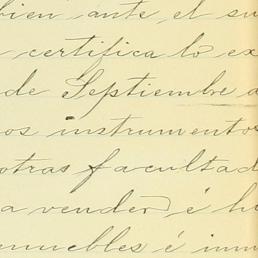 bien ante el su
certifica lo ex
de Septiembre a
os instrumentos
otras facultad
a vender é hi
muebles é inm